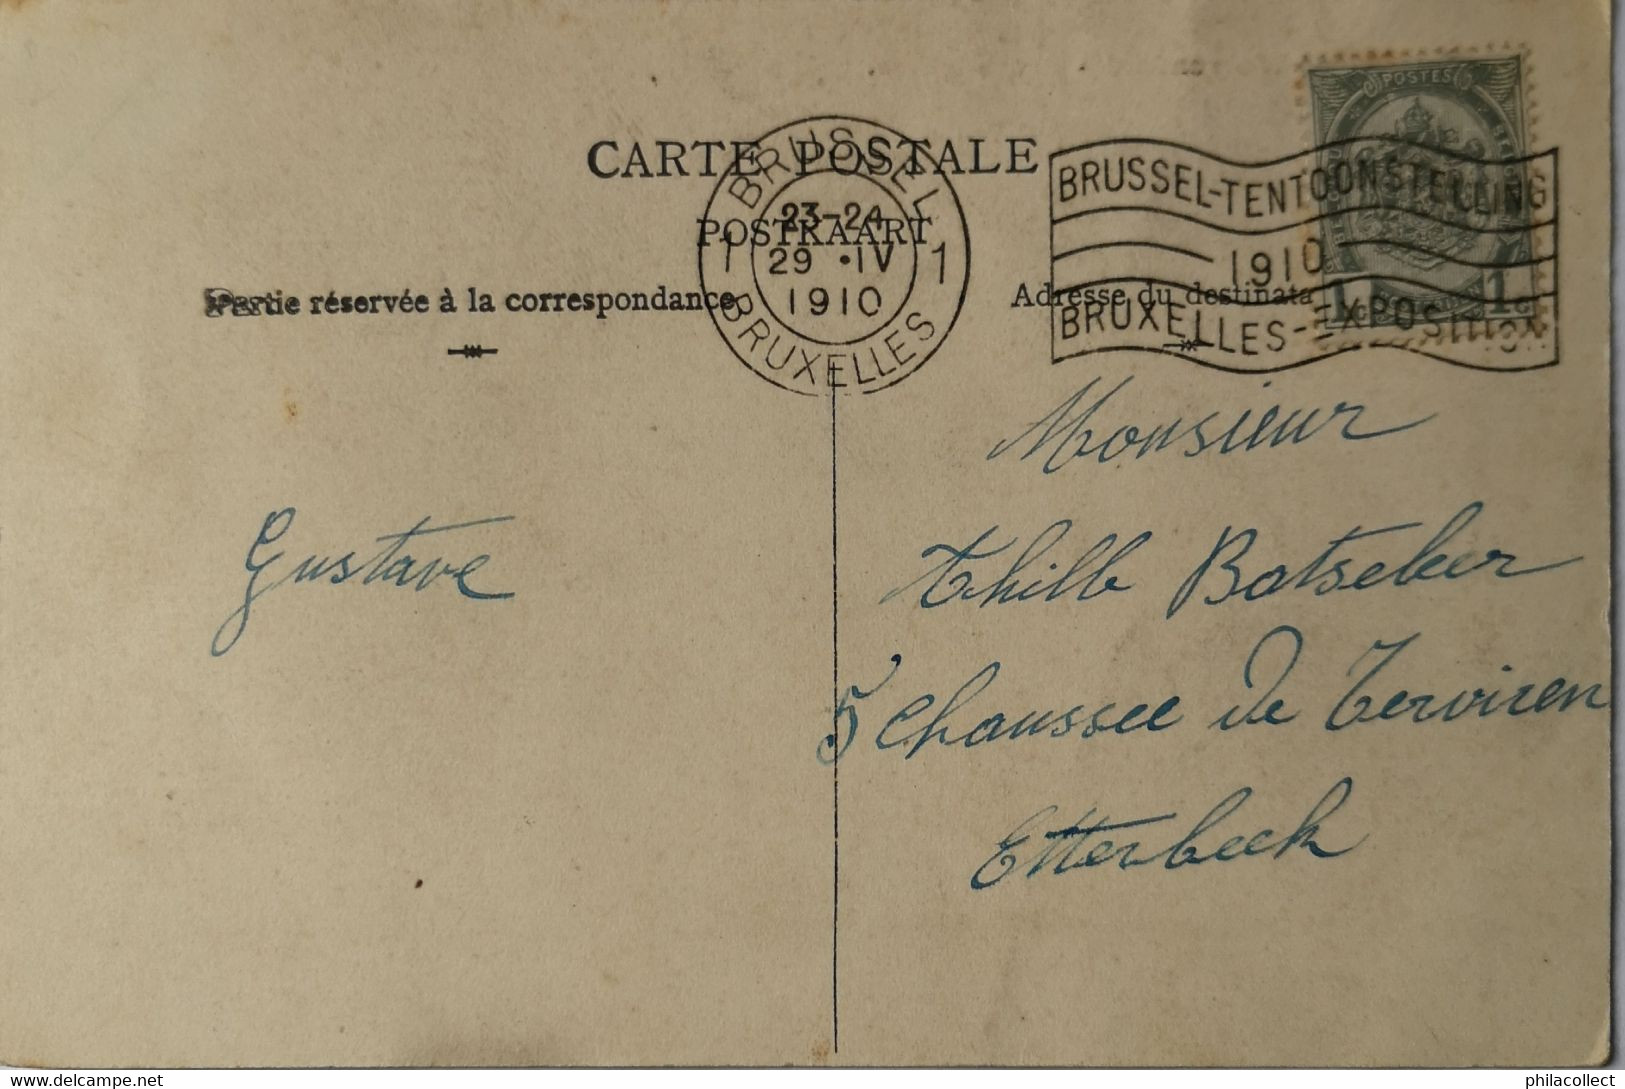 CARTE POSTALE
POSTKAART
Partie réservée à la correspondance
Adresse du destinata
BRUSSEL
23-24
29 •IV
1910
1 1
BRUXELLES
BRUSSEL-TENTOONSTELLING
1910
BRUXELLES-EXPOSITION
POSTES
1c 1c
Monsieur
Gustave
Thill Botseker
5 Chaussee de Terviren
Etterbeek
delcampe.net
philacollect